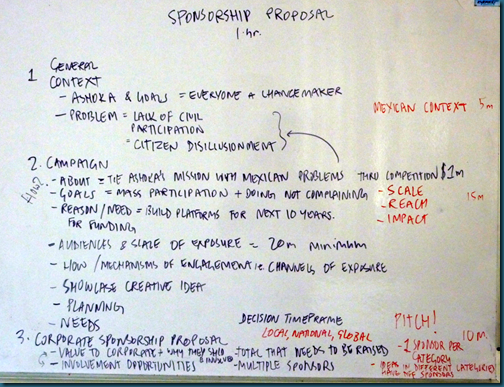 SPONSORSHIP PROPOSAL
1 hr.
1 GENERAL
CONTEXT
- ASHOKA & GOALS = EVERYONE A CHANGEMAKER
MEXICAN CONTEXT 5m
- PROBLEM = LACK OF CIVIL
PARTICIPATION
= CITIZEN DISILLUSIONMENT
2. CAMPAIGN
HOW?
- ABOUT = TIE ASHOKA'S MISSION WITH MEXICAN PROBLEMS THRU COMPETITION $1m
- GOALS = MASS PARTICIPATION + DOING NOT COMPLAINING - SCALE
15m
- REASON/NEED = BUILD PLATFORMS FOR NEXT 10 YEARS. - REACH
FOR FUNDING - IMPACT
- AUDIENCES & SCALE OF EXPOSURE = 20m MINIMUM
- HOW / MECHANISMS OF ENGAGEMENT i.e. CHANNELS OF EXPOSURE
- SHOWCASE CREATIVE IDEA
- PLANNING
- NEEDS
DECISION TIMEFRAME
PITCH!
LOCAL, NATIONAL, GLOBAL
10 m.
3. CORPORATE SPONSORSHIP PROPOSAL
- VALUE TO CORPORATE + WHY THEY SHLD
B INVOLVED
- TOTAL THAT NEEDS TO BE RAISED
- 1 SPONSOR PER
CATEGORY
- INVOLVEMENT OPPORTUNITIES - MULTIPLE SPONSORS
- IDEAS IN DIFFERENT CATEGORIES
HAVE DIFF SPONSORS